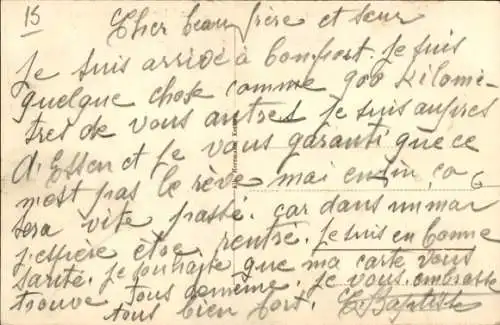 15
Cher beau frère et seur
Je suis arrivé à bon port. Je suis
quelque chose comme 900 Kilomè-
tres de vous autres Je suis aupres
d'Essen et Je vous garanti que ce
n'est pas le rêve mai enfin ça
sera vite passé. car dans un
j'espière être rentré. Je suis en bonne
santé. Je souhaite que ma carte vous
trouve tous de même. Je vous embrasse
tous bien fort. Baptiste